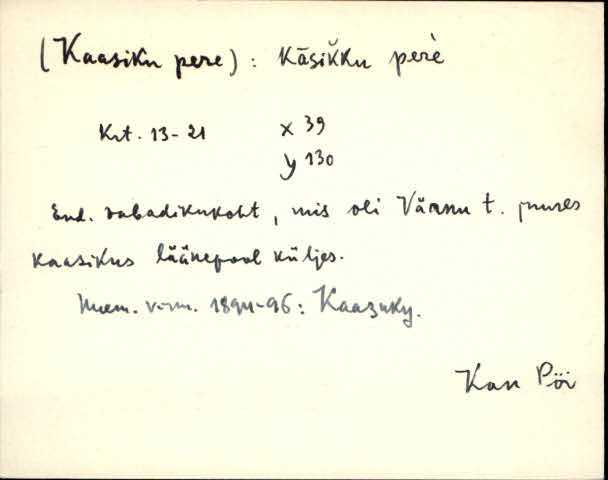 (Kaasiku pere): Kāsik̆ku perè
Krt. 13-21 x 39
y 130
End. vabadikukoht, mis oli Värnu t. juures
kaasikus läänepool küljes.
1894-96: Kaazuky.
Kan Pöi